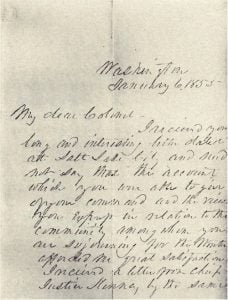 Washington
January 6, 1855
My dear Colonel
I received your
long and interesting letter dated
at Salt Lake City and need
not say that the account
which you were able to give
of your command and the views
you express in relation to the
community among whom you
are sojourning for the Winter
afforded me great satisfaction
I received a letter from Chief
Justice Kinney by the same